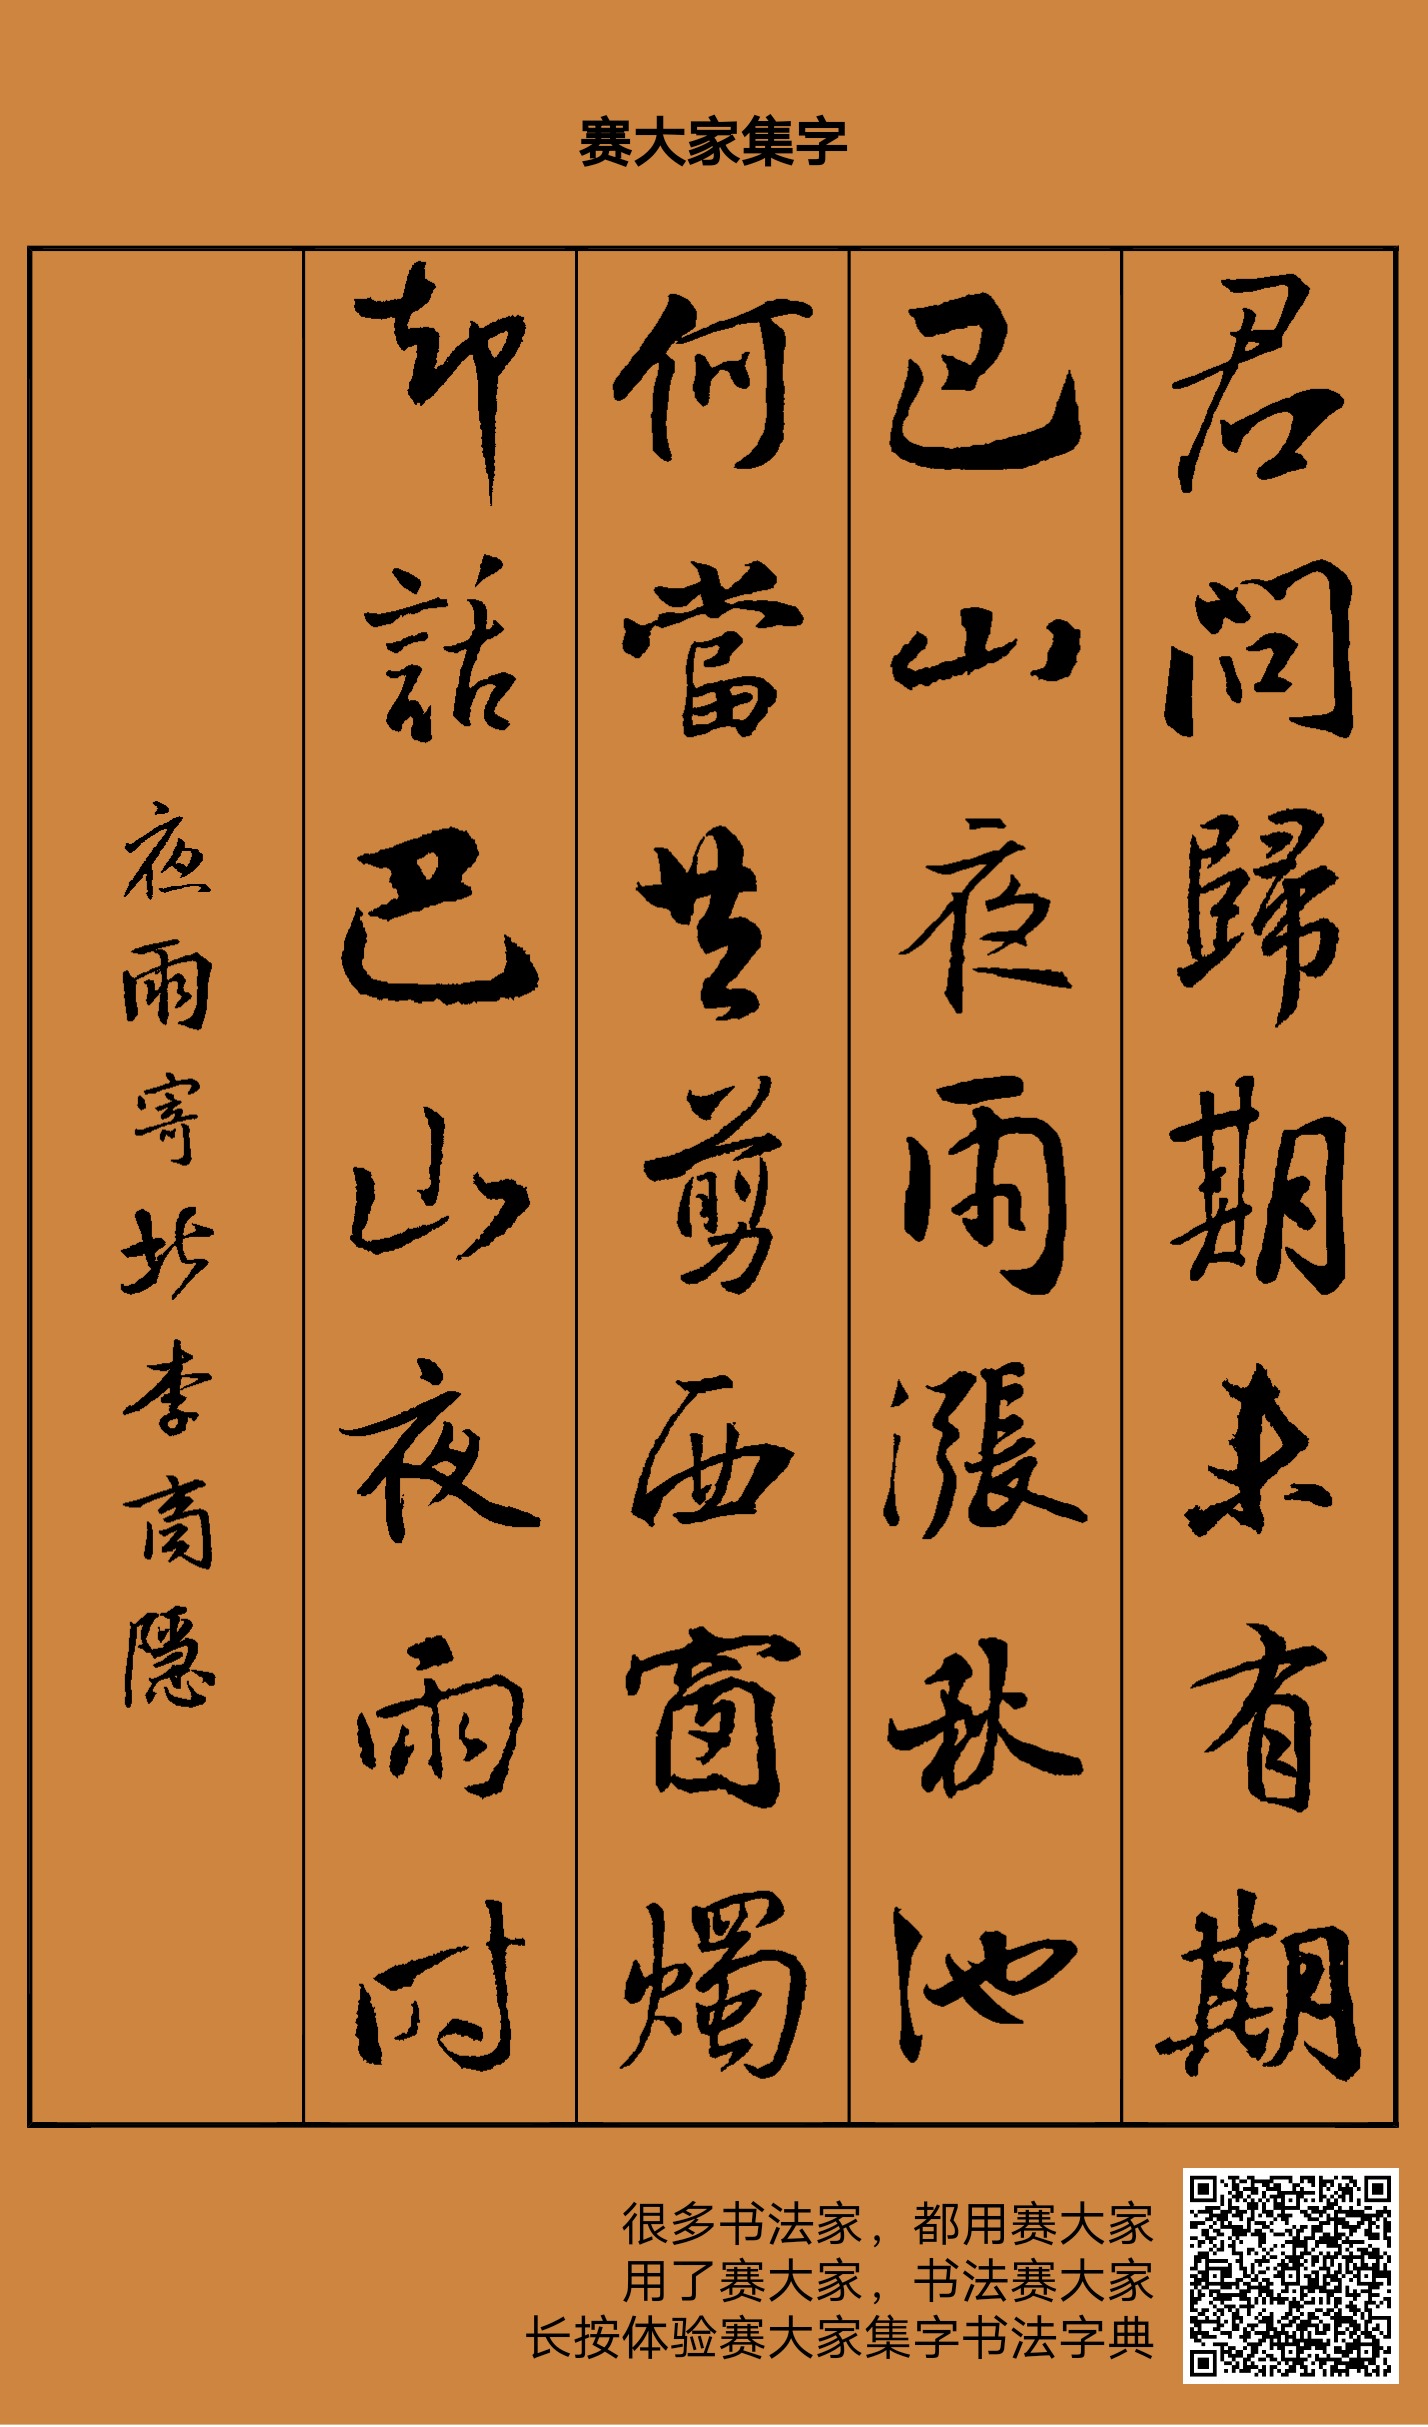 赛大家集字
君問歸期未有期
巴山夜雨漲秋池
何當共剪西窗燭
却話巴山夜雨时
夜雨寄北李商隱
很多书法家，都用赛大家
用了赛大家，书法赛大家
长按体验赛大家集字书法字典